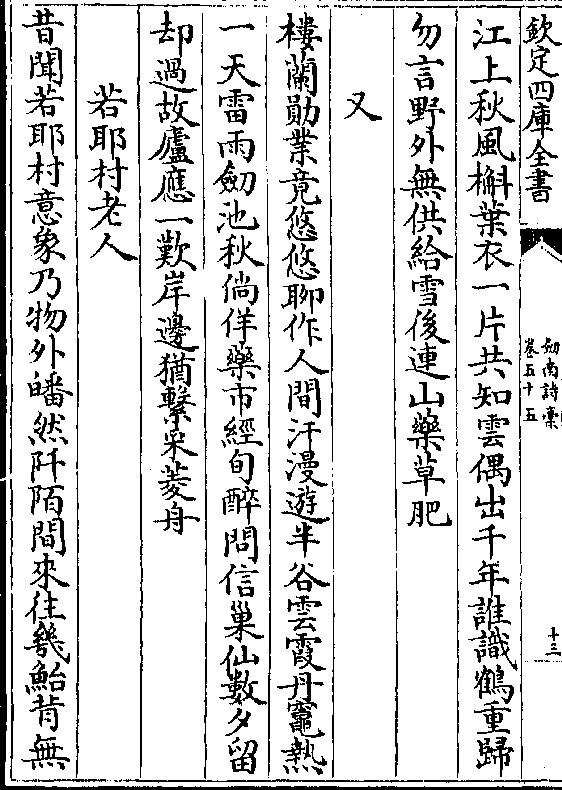 欽定四庫全書
劔南詩槀
卷五十五
十三
江上秋風槲葉衣一片共知雲偶出千年誰識鶴重歸
勿言野外無供給雪後連山藥草肥
又
樓蘭勛業竟悠悠聊作人間汗漫遊半谷雲霞丹竈熱
一天雷雨劔池秋倘佯藥市經旬醉問信巢仙數夕留
却過故廬應一歎岸邊猶繫采菱舟
若耶村老人
昔聞若耶村意象乃物外皤然阡陌間來往幾鮐背無